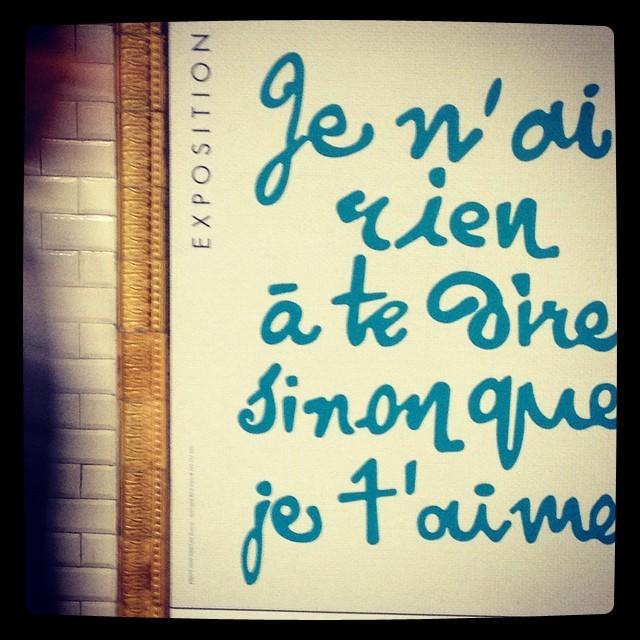 EXPOSITION
Je n'ai
rien
à te dire
sinon que
je t'aime